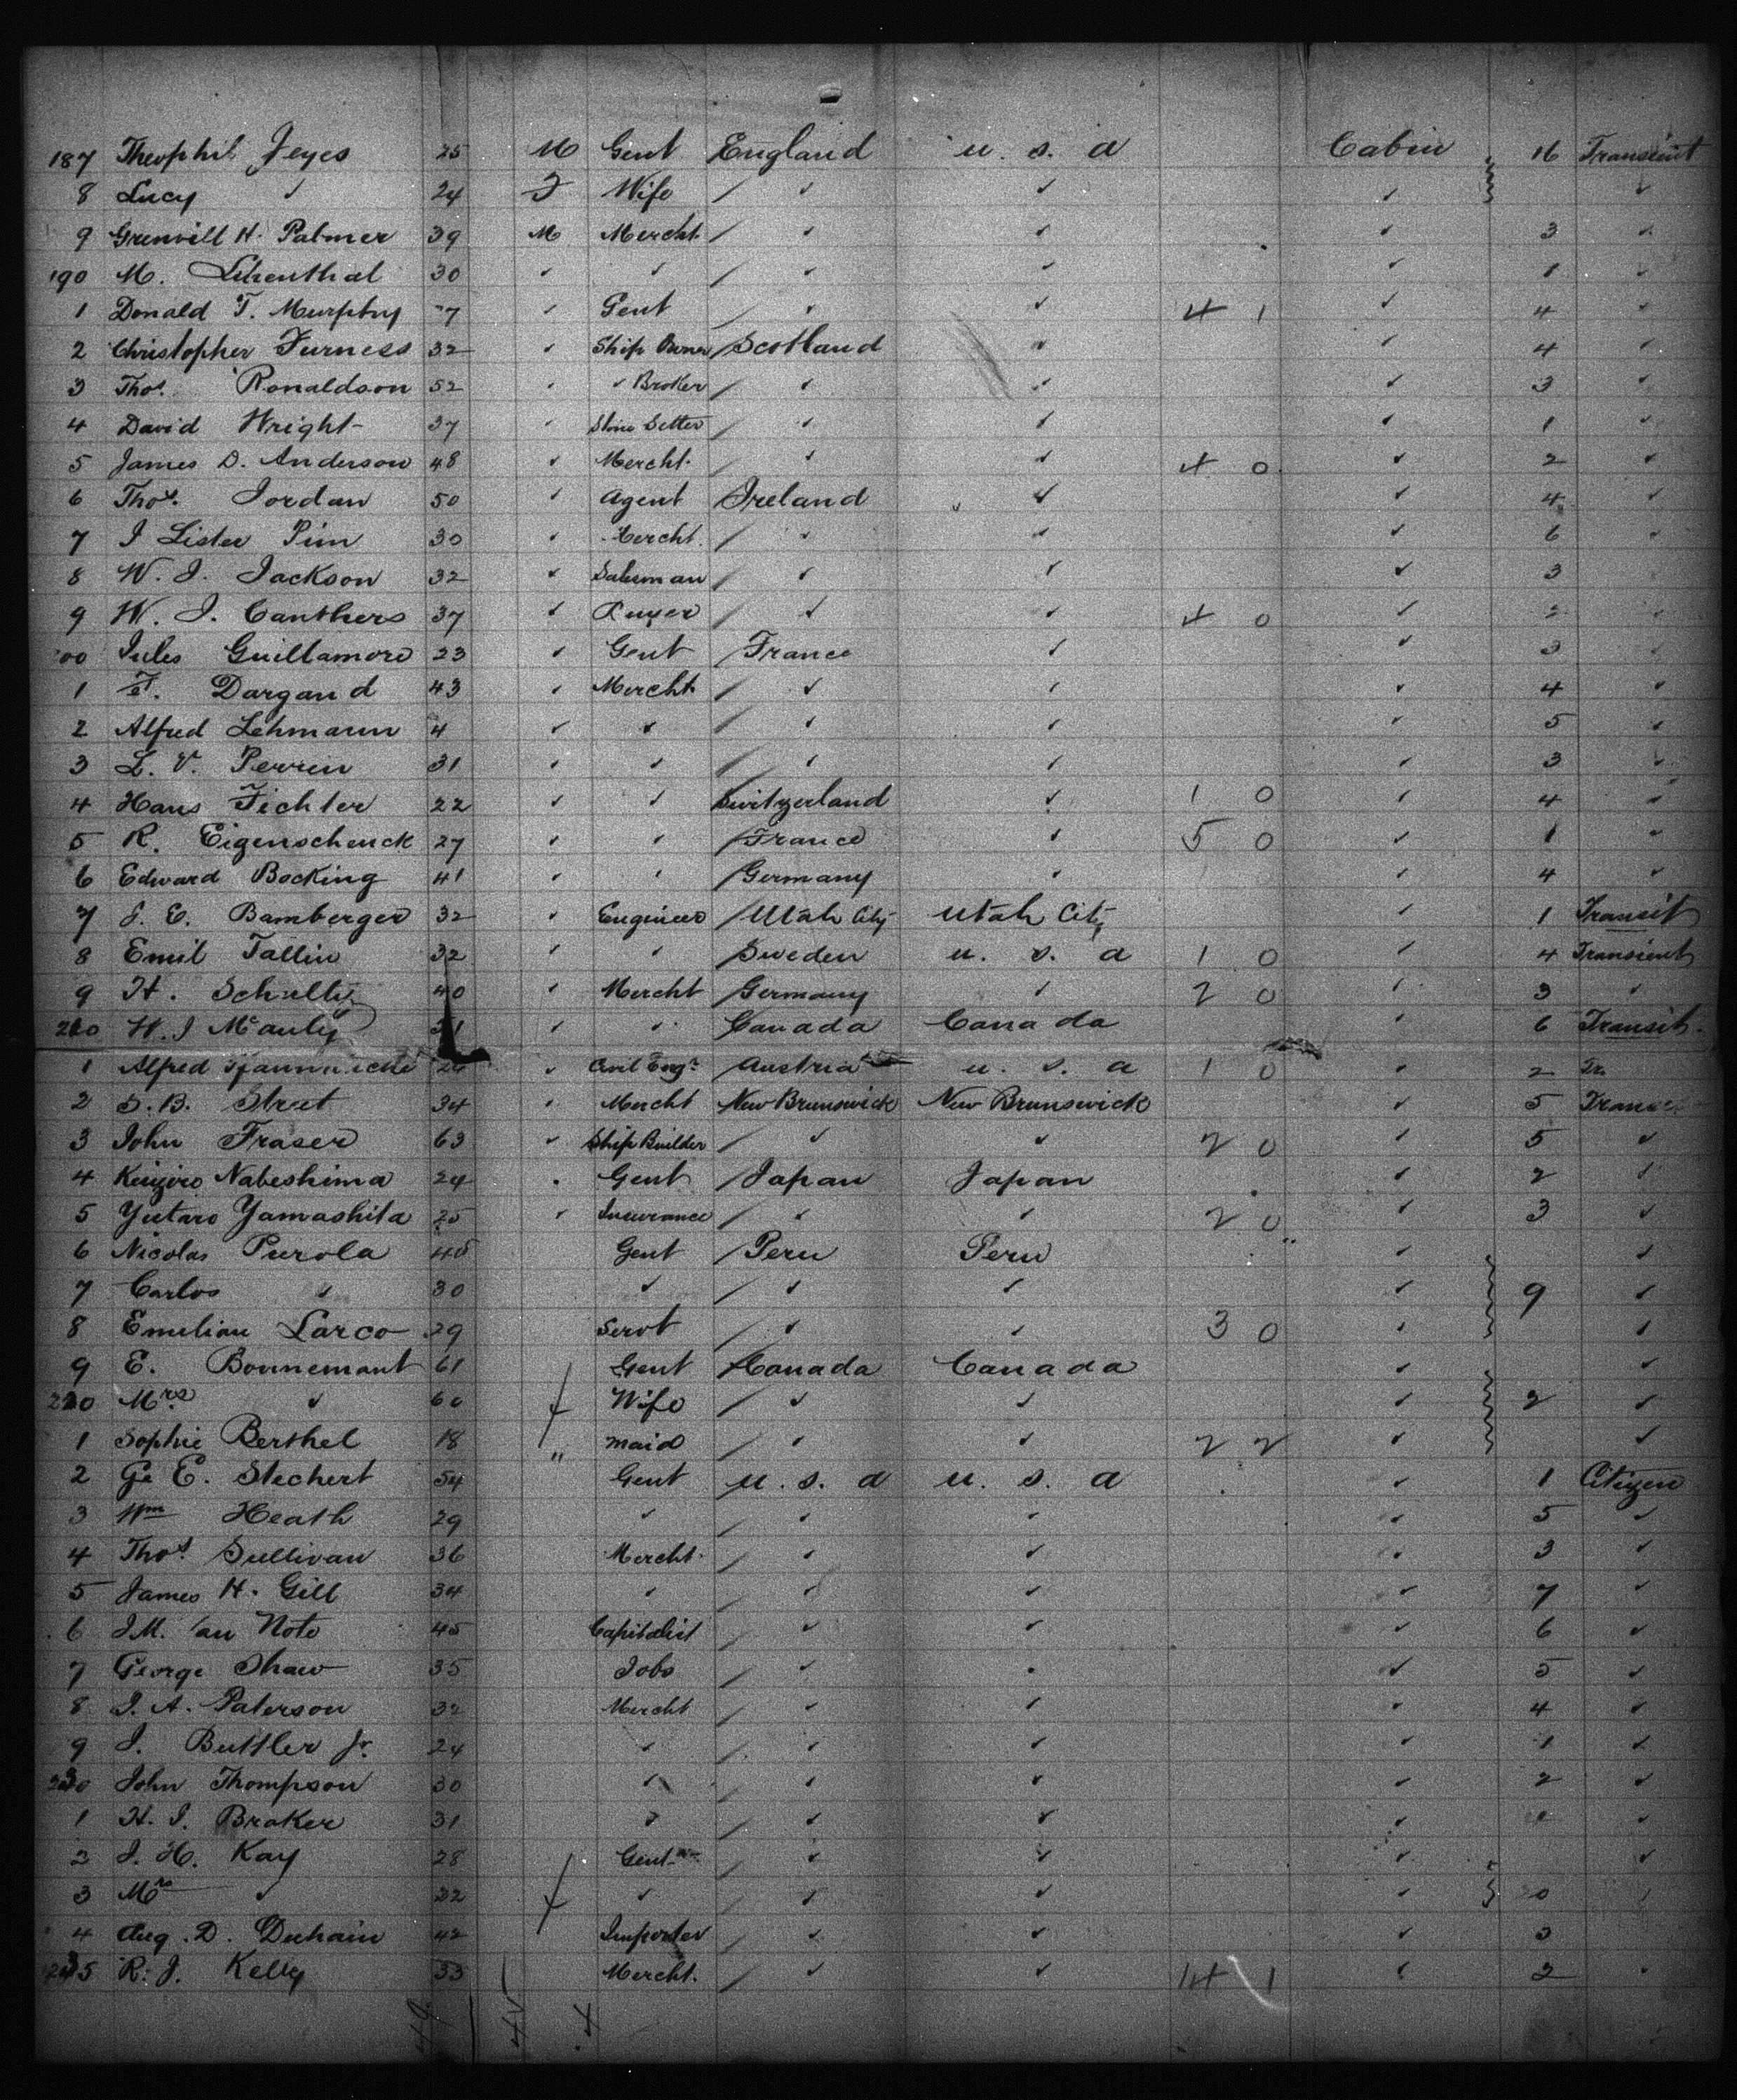 187 Theophil Jeyes 25 M Gent England U. S. A Cabin 16 Transient
8 Lucy ✓ 24 F Wife / ✓ ✓ ✓ ✓
9 Grenvill H. Palmer 39 M Mercht. / ✓ ✓ ✓ 3 ✓
190 M. Lilienthal 30 ✓ ✓ / ✓ ✓ ✓ 1 ✓
1 Donald T. Murphy 7 ✓ Gent / ✓ ✓ 4 1 ✓ 4 ✓
2 Christopher Furness 32 ✓ Ship Owner Scotland ✓ ✓ 4 ✓
3 Thos. Ronaldson 52 ✓ ✓ Broker / ✓ ✓ ✓ 3 ✓
4 David Wright 37 ✓ Stone Setter / ✓ ✓ ✓ 1 ✓
5 James D. Anderson 48 ✓ Mercht. / ✓ ✓ 4 0 ✓ 2 ✓
6 Thos. Jordan 50 ✓ Agent Ireland ✓ ✓ 4 ✓
7 J Lister Pim 30 ✓ Mercht. / ✓ ✓ ✓ 6 ✓
8 W. J. Jackson 32 ✓ Salesman / ✓ ✓ ✓ 3
9 W. J. Canthers 37 ✓ Buyer / ✓ ✓ 4 0 ✓ 2
00 Jules Guillamore 23 ✓ Gent France ✓ ✓ 3
1 F. Dargand 43 ✓ Mercht. / ✓ ✓ ✓ 4 ✓
2 Alfred Lehmann 4 ✓ ✓ / ✓ ✓ ✓ 5 ✓
3 L. V. Perrin 31 ✓ ✓ / ✓ ✓ ✓ 3 ✓
4 Hans Fichter 22 ✓ ✓ Switzerland ✓ 1 0 ✓ 4 ✓
5 R. Eigenschenck 27 ✓ ✓ France ✓ 5 0 ✓ 1 ✓
6 Edward Bocking 41 ✓ ✓ Germany ✓ ✓ 4 ✓
7 E. Bamberger 32 ✓ Engineer Utah City Utah City ✓ 1 Transit
8 Emil Tallin 32 ✓ ✓ Sweden U. S. A 1 0 ✓ 4 Transient
9 H. Schultz 40 ✓ Mercht Germany ✓ 2 0 ✓ 3 ✓
210 W. J McAuly ✓ ✓ Canada Canada ✓ 6 Transit
1 Alfred ✓ Civil Engr. Austria U. S. A 1 0 ✓ 2 Tr.
2 S. B. Street 34 ✓ Mercht New Brunswick New Brunswick ✓ 5
3 John Fraser 63 ✓ Ship Builder / ✓ ✓ 2 0 ✓ 5 ✓
4 Keiziro Nabeshima 24 ✓ Gent Japan Japan ✓ 2 ✓
5 Yutaro Yamashita 25 ✓ Insurance / ✓ ✓ 2 0 ✓ 3 ✓
6 Nicolas Purola 45 Gent Peru Peru ✓ ✓
7 Carlos ✓ 30 ✓ / ✓ ✓ ✓ 9 ✓
8 Emilian Larco 29 Servt / ✓ ✓ 3 0 ✓ ✓
9 E. Bonnemant 61 Gent Canada Canada ✓ ✓
220 Mrs. ✓ 60 Wife / ✓ ✓ ✓ 2 ✓
1 Sophie Berthel 18 " maid / ✓ ✓ 2 2 ✓ ✓
2 Ge E. Stechert 54 Gent U. S. A U. S. A ✓ 1 Citizen
3 Wm Heath 29 ✓ / ✓ ✓ ✓ 5 ✓
4 Thos. Sullivan 36 Mercht. / ✓ ✓ ✓ 3 ✓
5 James H. Gill 34 ✓ / ✓ ✓ ✓ 7 ✓
6 J. M. Van Note 45 Capitalist / ✓ ✓ ✓ 6 ✓
7 George Shaw 35 Jobs / ✓ ✓ ✓ 5 ✓
8 J. A. Paterson 32 Mercht / ✓ ✓ ✓ 4 ✓
9 J. Buttler Jr. 24 ✓ / ✓ ✓ ✓ 1 ✓
230 John Thompson 30 ✓ / ✓ ✓ ✓ 2 ✓
1 H. J. Braker 31 ✓ / ✓ ✓ ✓ ✓
2 J. H. Kay 28 Gent / ✓ ✓ ✓ ✓
3 Mrs ✓ 32 ✓ / ✓ ✓ ✓
4 Aug. D. Duhain 42 Importer / ✓ ✓ ✓ 3
235 R. J. Kelly 33 Mercht. / ✓ ✓ 14 1 ✓ 2 ✓